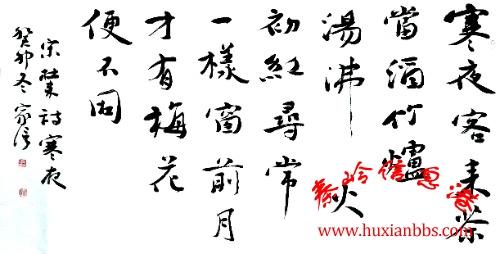 寒夜客来茶
當酒竹爐
湯沸火
初紅尋常
一樣窗前月
才有梅花
便不同
宋杜耒詩寒夜
癸卯冬家信
www.huxianbbs.com